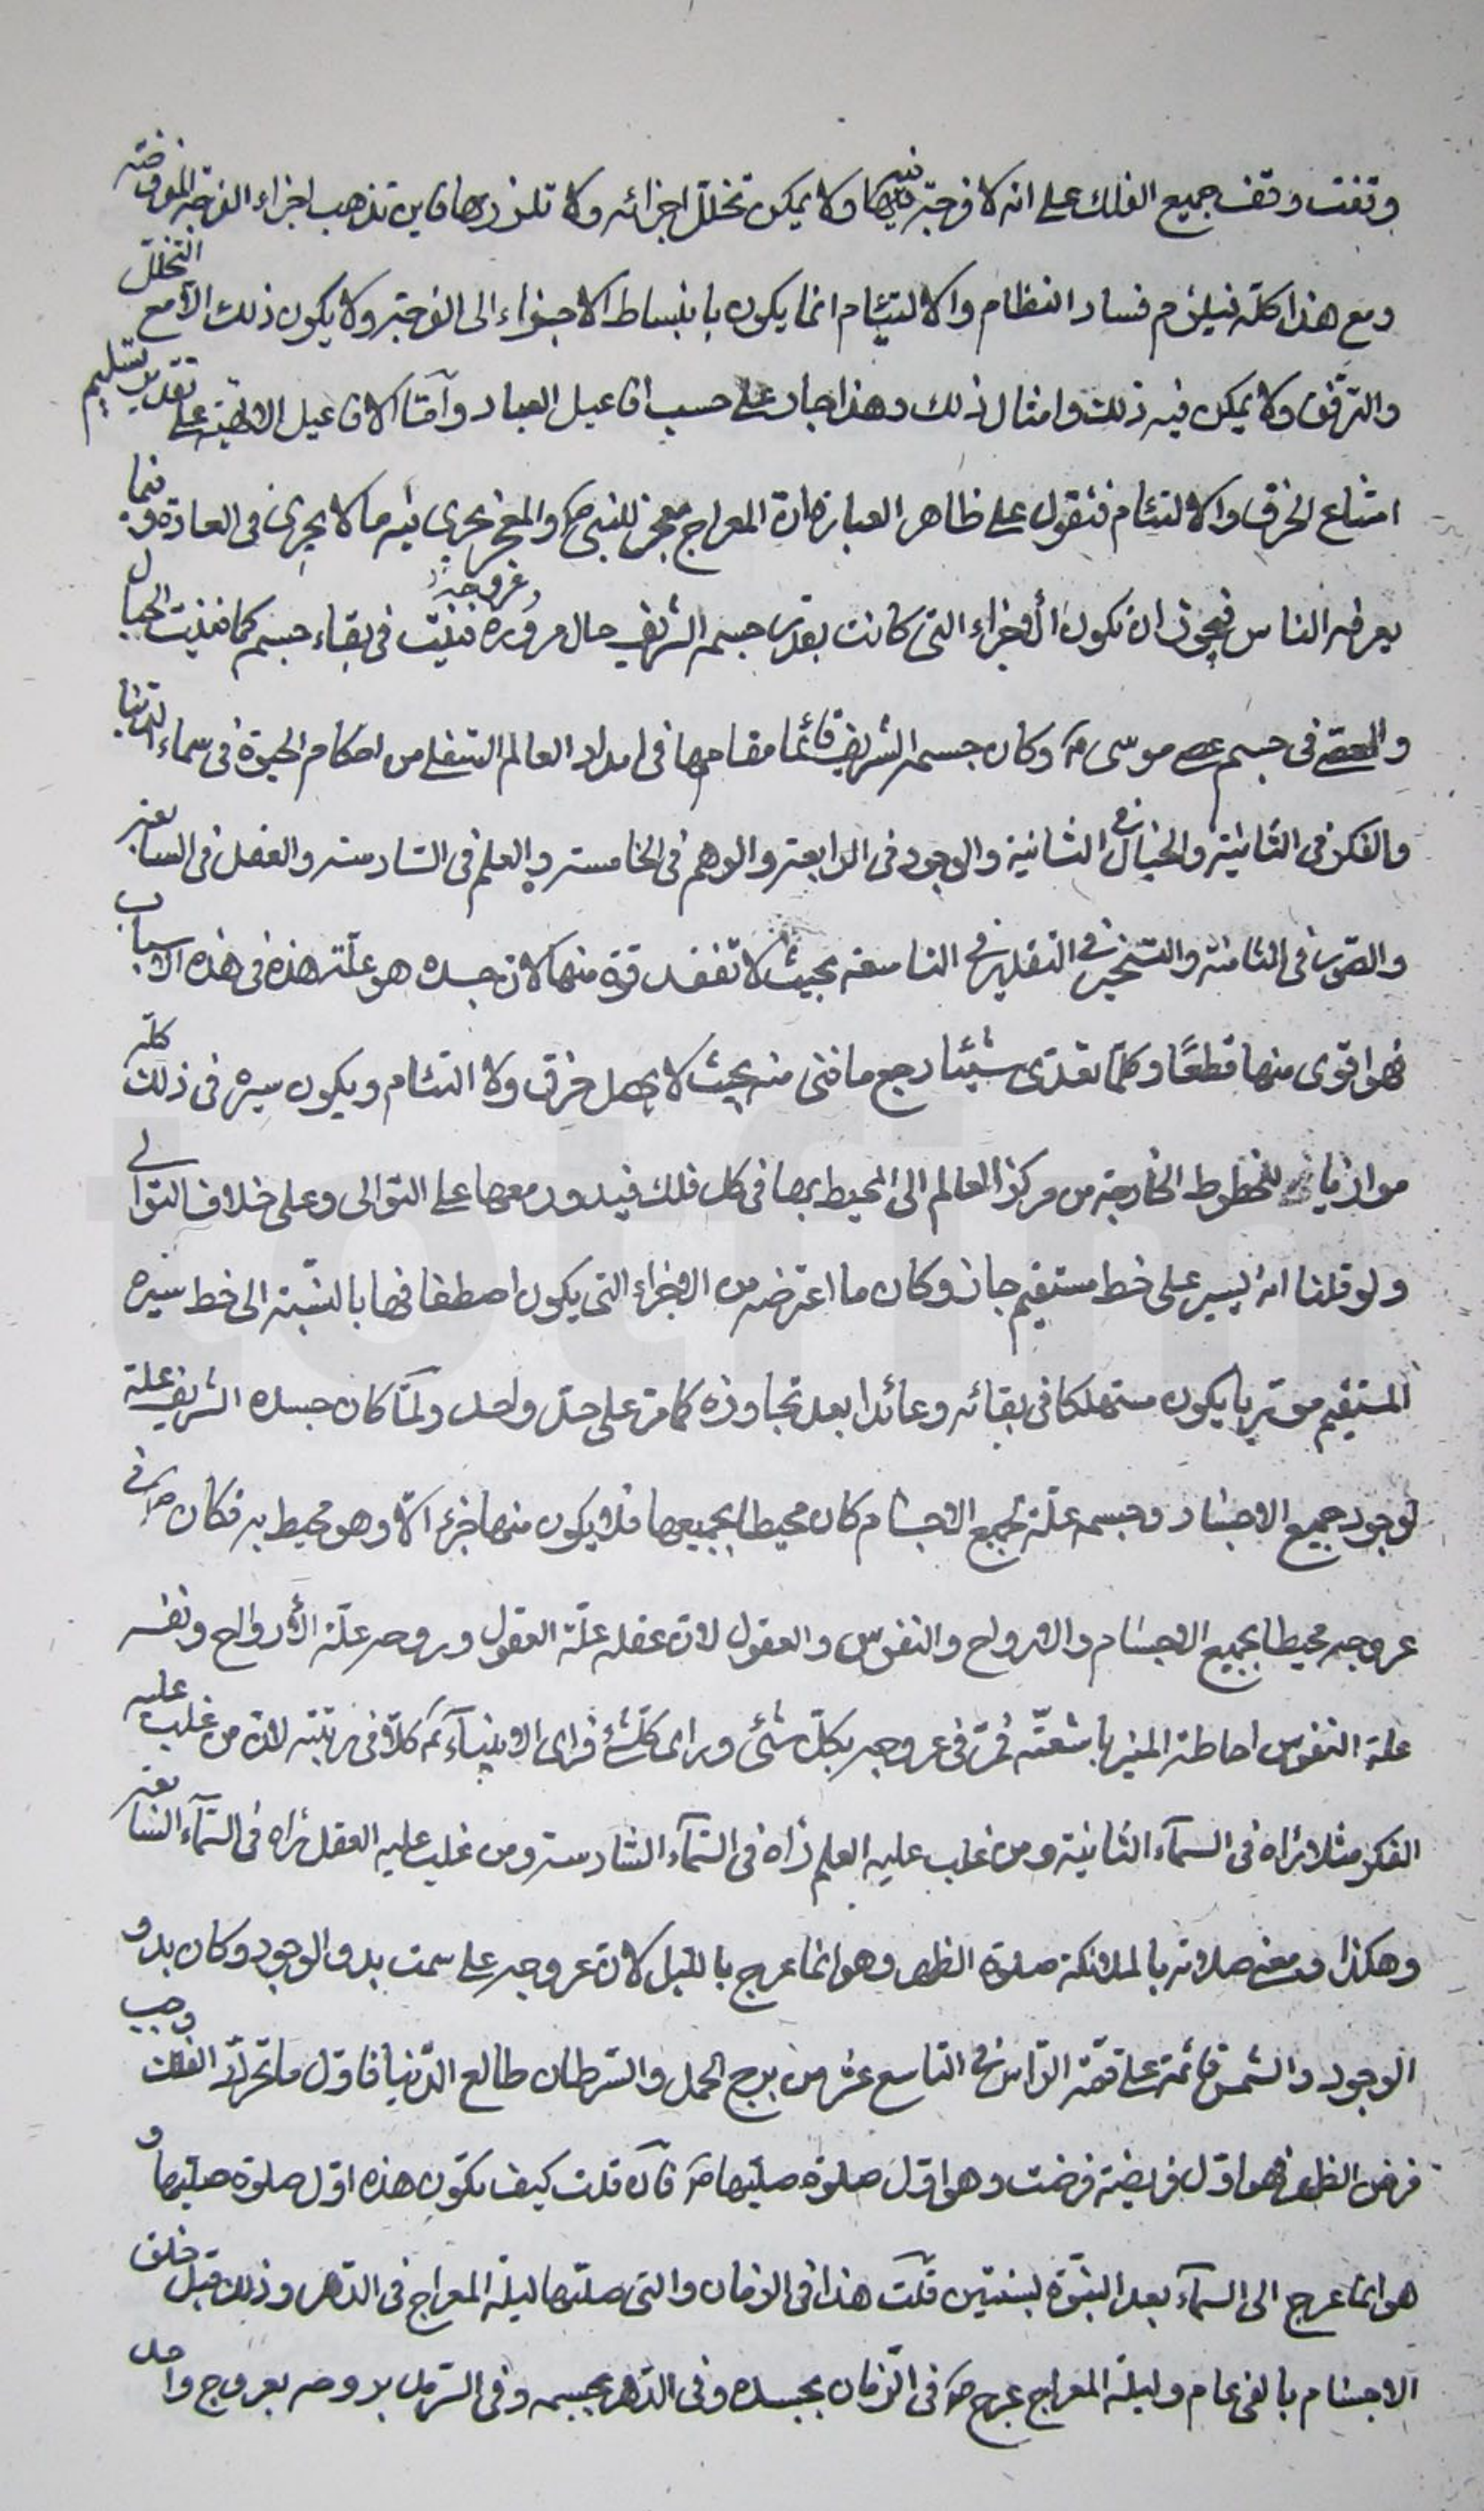 وقفت وقف جميع الفلك على انه لا فرجة فيها ولا يمكن تخلل اجزائه ولا تلززها فاين تذهب اجزاء الفرجة المفروضة
ومع هذا كله فيلزم فساد النظام والالتيام انما يكون بانبساط الاجزاء الى الفرجة ولا يكون ذلك الا مع التخلل
والترقق ولا يمكن فيه ذلك وامثال ذلك وهذا جار على حسب افاعيل العباد وامّا الافاعيل الالهية على تقدير تسليم
امتناع الخرق والالتئام فنقول على ظاهر العبارة انّ المعراج معجز للنبي ص والمعجز يجرى فيه ما لا يجرى فى العادة وفيما
يعرفه الناس فيجوز ان تكون الاجزاء التى كانت بقدر جسمه الشريف حال مروره وعروجه فنيت فى بقاء جسمه كما فنيت الحبال
والعصى فى جسم عصى موسى ع وكان جسمه الشريف قائما مقامها فى امداد العالم السفلى من احكام الحيوة فى سماء الدنيا
والفكر فى الثانية والخيال فى الثالثة والوجود فى الرابعة والوهم فى الخامسة والعلم فى السّادسة والعقل فى السابعة
والصّور فى الثامنة والتسخير فى التقدير فى التاسعة بحيث لا تفقد قوة منها لان جسده هو علّة هذه فى هذه الاسباب
فهو اقوى منها قطعًا وكلّما تعدّى شيئا رجع ما فنى منه بحيث لا يحصل خرق ولا التئام ويكون سيره فى ذلك كله
موازيا للخطوط الخارجة من مركز العالم الى المحيط بها فى كل فلك فيدور معها على التوالى وعلى خلاف التوالى
ولو قلنا انه يسير على خط مستقيم جاز وكان ما اعترضه من الاجزاء التى يكون اصطفافها بالنّسبة الى خط سيره
المستقيم موتربا يكون مستهلكا فى بقائه وعائدا بعد تجاوزه كما مرّ على حدّ واحد ولمّا كان جسده الشريف علة
لوجود جميع الاجساد وجسمه علّة لجميع الاجسام كان محيطا بجميعها فلا يكون منها جزء الّا وهو محيط به فكان ص فى
عروجه محيطا بجميع الاجسام والارواح والنفوس والعقول لانّ عقله علّة العقول وروحه علّة الأرواح ونفسه
علة النفوس احاطة المنير باشعّته فمرّ فى عروجه بكلّ شئ وراى كلّ شئ فراى الانبيآء ع كلّا فى رتبته لانّ من غلب عليه
الفكر مثلا رٰاه فى السمآء الثانية ومن غلب عليه العلم رٰاه فى السّمآء السّادسة ومن غلب عليه العقل رٰاه فى السّمآء السابعة
وهكذا ومعنى صلاته بالملائكة صلوة الظهر وهو انما عرج بالليل لانّ عروجه على سمت بدو الوجود وكان بدو
الوجود والشمس قائمة على قمّة الرّاس فى التاسع عشر من برج الحمل والسّرطان طالع الدّنيا فاوّل ما تحرّك الفلك وجب
فرض الظهر فهو اوّل فريضة فرضت وهو اوّل صلوة صليها ص فان قلت كيف تكون هذه اوّل صلوة صليها و
هو انما عرج الى السمآء بعد النبّوة بسنتين قلت هذا فى الزمان والتى صلّيها ليلة المعراج فى الدّهر وذلك قبل خلق
الاجسام بالفى عام وليلة المعراج عرج ص فى الزّمان بجسده وفى الدّهر بجسمه وفى السّرمد بروحه بعروج واحد